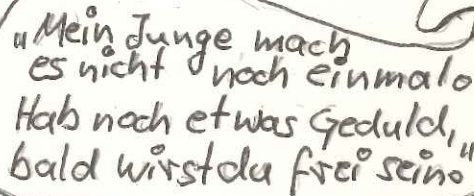 „Mein Junge mach
es nicht noch einmal.
Hab noch etwas Geduld,
bald wirst du frei sein."